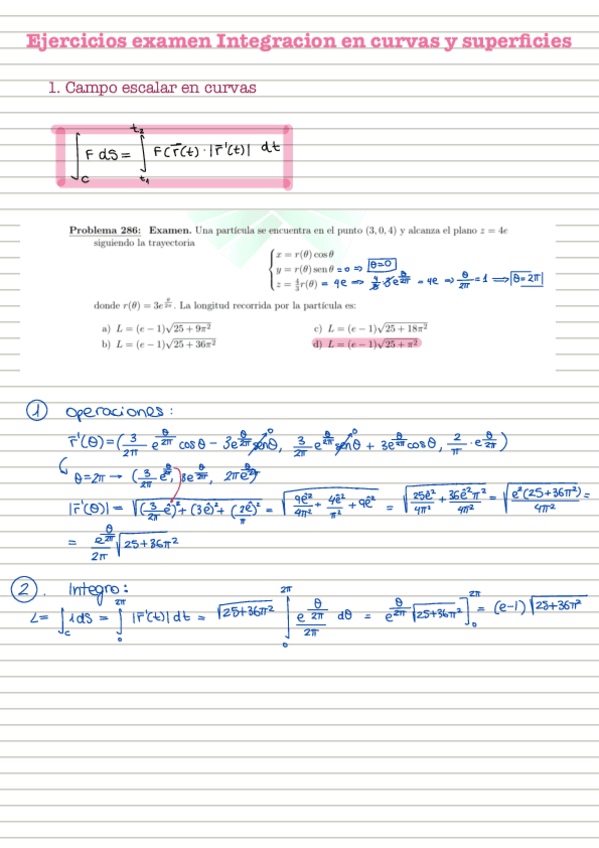 Ejercicios examen Integracion en curvas y superficies
1. Campo escalar en curvas
∫_C F dS = ∫_{t₁}^{t₂} F(r̄(t)·|r̄'(t)| dt
Problema 286: Examen. Una partícula se encuentra en el punto (3, 0, 4) y alcanza el plano z = 4e
siguiendo la trayectoria
x = r(θ) cos θ
y = r(θ) sen θ = 0 ⇒ θ=0
z = 4/3 r(θ) = 4e ⇒ 4/3 · 3e^{θ/2π} = 4e ⇒ θ/2π = 1 ⟹ θ=2π
donde r(θ) = 3e^{θ/2π}. La longitud recorrida por la partícula es:
a) L = (e − 1)√(25 + 9π²)
c) L = (e − 1)√(25 + 18π²)
b) L = (e − 1)√(25 + 36π²)
d) L = (e − 1)√(25 + π²)
① operaciones:
r̄'(θ) = (3/2π e^{θ/2π} cosθ − 3e^{θ/2π} senθ, 3/2π e^{θ/2π} senθ + 3e^{θ/2π} cosθ, 2/π · e^{θ/2π})
θ=2π → (3/2π e, 3e^{θ/2π}, 2π e^{θ/2π})
|r̄'(θ)| = √((3/2π e)² + (3e)² + (2e/π)²) = √(9e²/4π² + 4e²/π² + 9e²) = √(25e²/4π² + 36e²π²/4π²) = √(e²(25+36π²)/4π²) =
= e^{θ/2π}/2π √(25+36π²)
②. Integro:
L = ∫_C 1dS = ∫_0^{2π} |r̄'(t)| dt = √(25+36π²) ∫_0^{2π} e^{θ/2π}/2π dθ = e^{θ/2π} √(25+36π²)]_0^{2π} = (e−1) √(25+36π²)